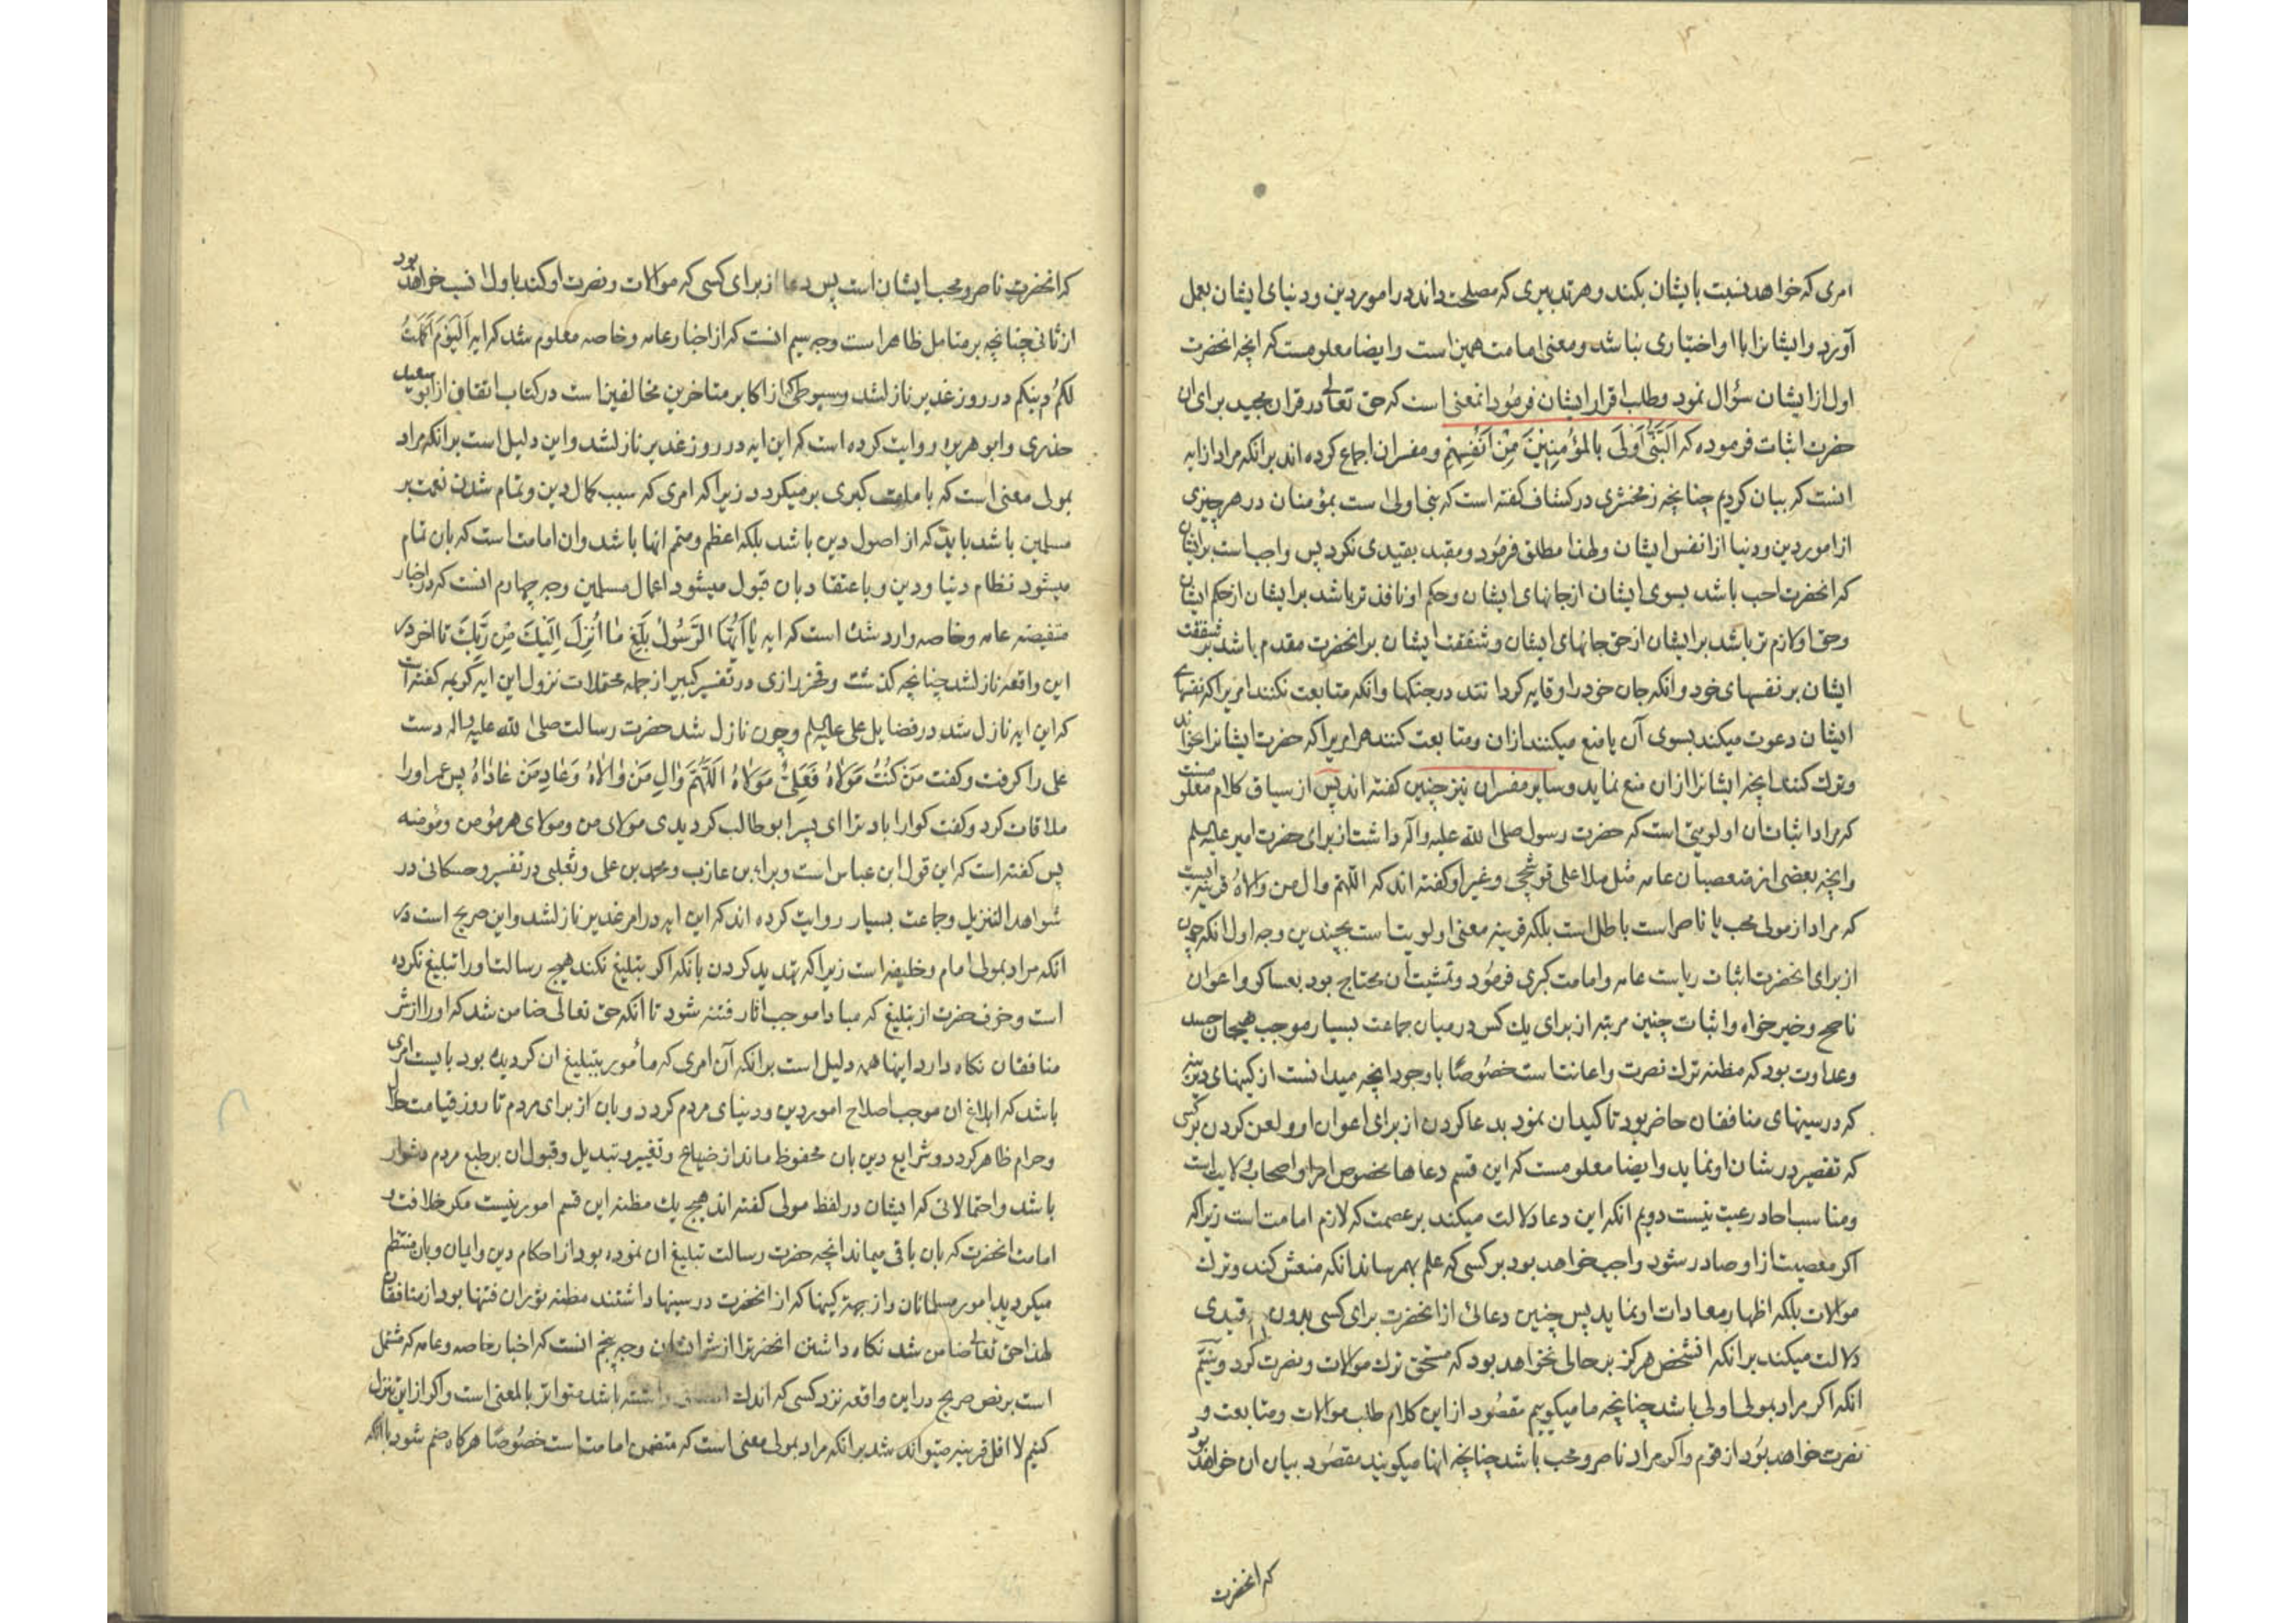 امری که خواهد نسبت بایشان بکند و هر تدبیری که مصلحت داند در امور دین و دنیای ایشان بعمل
آورد و ایشانرا با او اختیاری نباشد و معنی امامت همین است و ایضا معلومست که انچه انحضرت
اول از ایشان سؤال نمود و طلب اقرار ایشان فرمود انمعنی است که حق تعالی در قران مجید برای ان
حضرت اثبات فرموده که اَلنَّبِیُّ اَولیٰ بِالمُؤمِنینَ مِن اَنفُسِهِم و مفسران اجماع کرده اند برانکه مراد از ایه
انست که بیان کردیم چنانچه زمخشری در کشاف گفته است که نبی اولی است بمؤمنان در هر چیزی
از امور دین و دنیا از انفس ایشان و لهذا مطلق فرمود و مقید بقیدی نکرد پس واجب است بر ایشان
که انحضرت احب باشد بسوی ایشان از جانهای ایشان و حکم او نافذتر باشد بر ایشان از حکم ایشان
و حق او لازم تر باشد بر ایشان از حق جانهای ایشان و شفقت ایشان بر انحضرت مقدم باشد بر شفقت
ایشان بر نفسهای خود و انکه جان خود را وقایه او گردانند در جنگها و انکه متابعت نکنند امریرا که نفسهای
ایشان دعوت میکند بسوی آن یا منع میکنند ازان و متابعت کنند هر امریرا که حضرت ایشانرا خواند
و ترک کنند انچه ایشانرا ازان منع نماید و سایر مفسران نیز چنین گفته اند پس از سیاق کلام معلومست
که مراد اثبات ان اولویتی است که حضرت رسول صلی الله علیه و آله داشت از برای حضرت امیر علیه السلم
و انچه بعضی از متعصبان عامه مثل ملا علی قوشچی و غیر او گفته اند که اللّهم وال من والاه قرینه انست
که مراد از مولی محب یا ناصر است باطل است بلکه قرینه معنی اولویت است بچندین وجه اول انکه چون
از برای انحضرت اثبات ریاست عامه و امامت کبری فرمود و تمشیت آن محتاج بود بعساکر و اعوان
ناصح و خیرخواه و اثبات چنین مرتبه از برای یک کس در میان جماعت بسیار موجب هیجان حسد
و عداوت بود که مظنه ترک نصرت و اعانت است خصوصًا با وجود انچه میدانست از کینهای دیرینه
که در سینهای منافقان حاضر بود تاکید ان نمود بدعا کردن از برای اعوان او و لعن کردن بر کسی
که تقصیر در شان او نماید و ایضا معلومست که این قسم دعاها مخصوص امرا و اصحاب ولایت است
و مناسب احاد رعیت نیست دویم انکه این دعا دلالت میکند بر عصمت که لازم امامت است زیرا که
اکر معصیت از او صادر شود واجب خواهد بود بر کسی که علم بهم رساند انکه منعش کند و ترک
موالات بلکه اظهار معادات او نماید پس چنین دعائی از انحضرت برای کسی بدون قیدی
دلالت میکند برانکه انشخص هرگز بر حالی نخواهد بود که مستحق ترک موالات و نصرت گردد و سیّم
انکه اکر مراد بمولی اولی باشد چنانچه ما میکوییم مقصود از این کلام طلب موالات و متابعت و
نصرت خواهد بود از قوم و اکر مراد ناصر و محب باشد چنانچه انها میکویند مقصود بیان ان خواهد بود
که انحضرت
که انحضرت ناصر و محب ایشان است پس دعا از برای کسی که موالات و نصرت او کند باول انسب خواهد بود
از ثانی چنانچه بر متامل ظاهر است وجه سیم انست که از اخبار عامه و خاصه معلوم شد که ایه اَلیَومَ اَکمَلتُ
لَکُم دینَکُم در روز غدیر نازل شد و سیوطی که از اکابر متاخرین مخالفین است در کتاب اتقان از ابو سعید
خدری و ابو هریره روایت کرده است که این ایه در روز غدیر نازل شد و این دلیل است برانکه مراد
بمولی معنی است که بامامت کبری برمیگردد زیرا که امری که سبب کمال دین و تمام شدن نعمت بر
مسلمین باشد بایست که از اصول دین باشد بلکه اعظم و متمم انها باشد و ان امامت است که بان تمام
میشود نظام دنیا و دین و باعتقاد بان قبول میشود اعمال مسلمین وجه چهارم انست که در اخبار
مستفیضه عامه و خاصه وارد شده است که ایه یٰا اَیُّهَا الرَّسُولُ بَلِّغ مٰا اُنزِلَ اِلَیکَ مِن رَبِّکَ تا اخر در
این واقعه نازل شد چنانچه گذشت و فخر رازی در تفسیر کبیر از جمله محتملات نزول این ایه کریمه گفته است
که این ایه نازل شد در فضایل علی علیه السلم و چون نازل شد حضرت رسالت صلی الله علیه و اله دست
علی را گرفت و گفت مَن کُنتُ مَولاهُ فَعَلِیٌّ مَولاهُ اَللّٰهُمَّ وٰالِ مَن وٰالاٰهُ وَ عٰادِ مَن عٰادٰاهُ پس عمر او را
ملاقات کرد و گفت کوارا باد ترا ای پسر ابو طالب گردیدی مولای من و مولای هر مؤمن و مؤمنه
پس گفته است که این قول ابن عباس است و براء بن عازب و محمد بن علی و ثعلبی در تفسیر و حسکانی در
شواهد التنزیل و جماعت بسیار روایت کرده اند که این ایه در امر غدیر نازل شد و این صریح است در
انکه مراد بمولی امام و خلیفه است زیرا که تهدید کردن بانکه اکر تبلیغ نکند هیچ رسالت او را تبلیغ نکرده
است و خوف حضرت از تبلیغ که مبادا موجب اثاره فتنه شود تا انکه حق تعالی ضامن شد که او را از شر
منافقان نگاه دارد اینها همه دلیل است برانکه آن امری که مأمور بتبلیغ ان گردیده بود بایست امری
باشد که ابلاغ ان موجب اصلاح امور دین و دنیای مردم گردد و بان از برای مردم تا روز قیامت حلال
و حرام ظاهر گردد و شرایع دین بان محفوظ ماند از ضیاع و تغییر و تبدیل و قبول ان بر طبع مردم دشوار
باشد و احتمالاتی که ایشان در لفظ مولی گفته اند هیچ یک مظنه این قسم امور نیست مکر خلافت و
امامت انحضرت که بان باقی میماند انچه حضرت رسالت تبلیغ ان نموده بود از احکام دین و ایمان و بان منتظم
میگردید امور مسلمانان و از جهة کینها که از انحضرت در سینها داشتند مظنه ثوران فتنها بود از منافقان
لهذا حق تعالی ضامن شد نگاه داشتن انحضرترا از شر ایشان وجه پنجم انست که اخبار خاصه و عامه که مشتمل
است بر نص صریح در این واقعه نزد کسی که اندک انصاف داشته باشد متواتر بالمعنی است و اکر از این تنزل
کنیم لا اقل قرینه میتواند شد برانکه مراد بمولی معنی است که متضمن امامت است خصوصًا هرگاه ضم شود با انکه